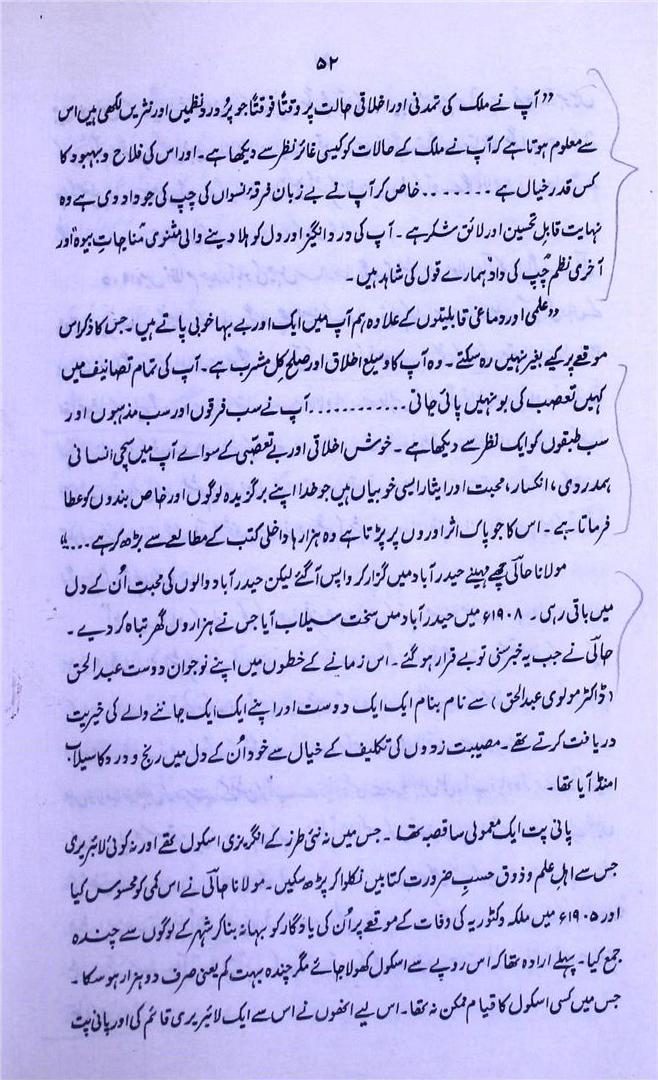 ۵۲
”آپ نے ملک کی تمدنی اور اخلاقی حالت پر وقتاً فوقتاً جو پُر درد نظمیں اور نثریں لکھی ہیں اس
سے معلوم ہوتا ہے کہ آپ نے ملک کے حالات کو کیسی غائر نظر سے دیکھا ہے۔ اور اس کی فلاح و بہبود کا
کس قدر خیال ہے ....... خاص کر آپ نے بے زبان فرقۂ نسواں کی چپ کی جو داد دی ہے وہ
نہایت قابلِ تحسین اور لائق شکر ہے۔ آپ کی درد انگیز اور دل کو ہلا دینے والی مثنوی مناجاتِ بیوہ اور
آخری نظم چُپ کی داد ہمارے قول کی شاہد ہیں۔
”علمی اور دماغی قابلیتوں کے علاوہ ہم آپ میں ایک اور بے بہا خوبی پاتے ہیں۔ جس کا ذکر اس
موقعے پر کیے بغیر نہیں رہ سکتے۔ وہ آپ کا وسیع اخلاق اور صلحِ کل مشرب ہے۔ آپ کی تمام تصانیف میں
کہیں تعصب کی بو نہیں پائی جاتی ........... آپ نے سب فرقوں اور سب مذہبوں اور
سب طبقوں کو ایک نظر سے دیکھا ہے۔ خوش اخلاقی اور بے تعصبی کے سوا آپ میں سچی انسانی
ہمدردی، انکسار، محبت اور ایثار ایسی خوبیاں ہیں جو خدا اپنے برگزیدہ لوگوں اور خاص بندوں کو عطا
فرماتا ہے۔ اس کا جو پاک اثر اوروں پر پڑتا ہے وہ ہزارہا داخلی کتب کے مطالعے سے بڑھ کر ہے....“
مولانا حالیؔ چھے مہینے حیدرآباد میں گزار کر واپس آگئے لیکن حیدرآباد والوں کی محبت اُن کے دل
میں باقی رہی۔ ۱۹۰۸ء میں حیدرآباد میں سخت سیلاب آیا جس نے ہزاروں گھر تباہ کر دیے۔
حالیؔ نے جب یہ خبر سنی تو بے قرار ہو گئے۔ اس زمانے کے خطوں میں اپنے نوجوان دوست عبدالحق
(ڈاکٹر مولوی عبدالحق) سے نام بنام ایک ایک دوست اور اپنے ایک ایک جاننے والے کی خیریت
دریافت کرتے تھے۔ مصیبت زدوں کی تکلیف کے خیال سے خود اُن کے دل میں رنج و درد کا سیلاب
امنڈ آیا تھا۔
پانی پت ایک معمولی سا قصبہ تھا۔ جس میں نہ نئی طرز کے انگریزی اسکول تھے اور نہ کوئی لائبریری
جس سے اہلِ علم و ذوق حسبِ ضرورت کتابیں نکلوا کر پڑھ سکیں۔ مولانا حالیؔ نے اس کمی کو محسوس کیا
اور ۱۹۰۵ء میں ملکہ وکٹوریہ کی وفات کے موقعے پر اُن کی یادگار کو بہانہ بنا کر شہر کے لوگوں سے چندہ
جمع کیا۔ پہلے ارادہ تھا کہ اس روپے سے اسکول کھولا جائے مگر چندہ بہت کم یعنی صرف دو ہزار ہو سکا۔
جس میں کسی اسکول کا قیام ممکن نہ تھا۔ اس لیے انھوں نے اس سے ایک لائبریری قائم کی اور پانی پت